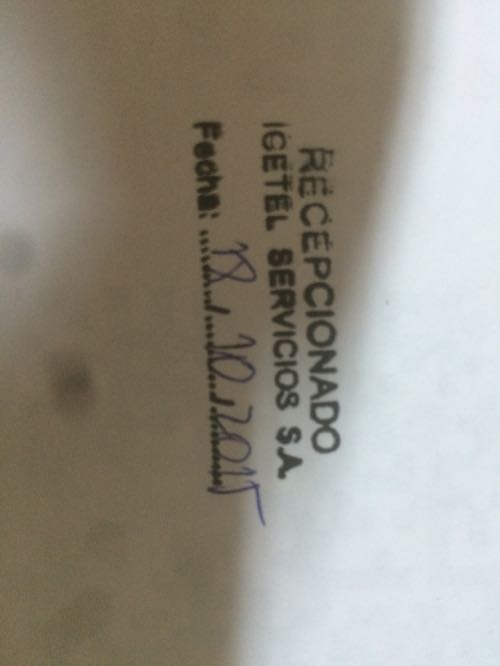 RECEPCIONADO
ICETEL SERVICIOS S.A.
Fecha: 18/10/2015